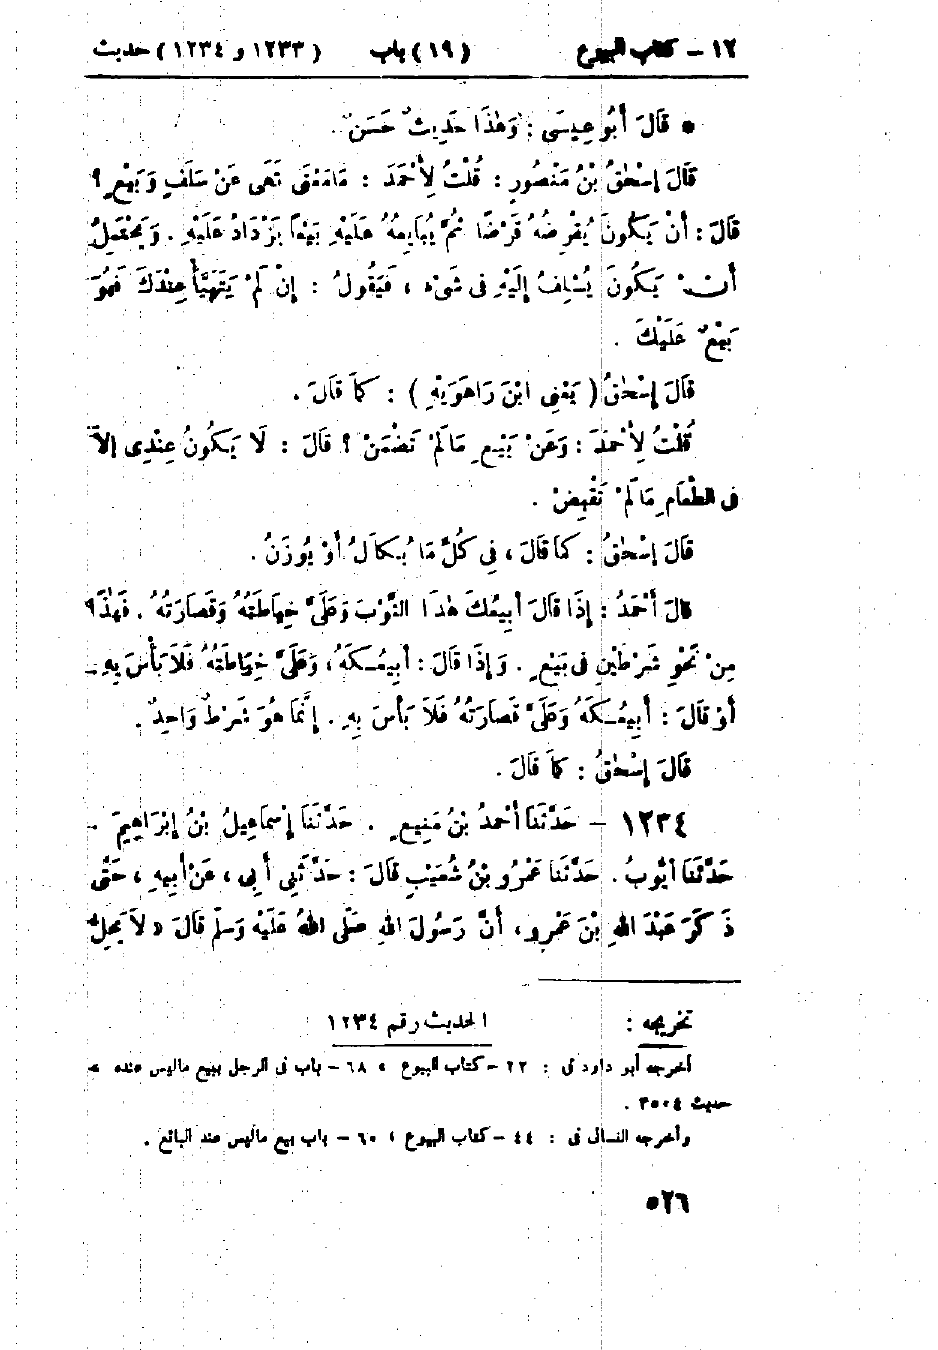 ١٢ – كتاب البيوع (١٩) باب (١٢٣٣ و ١٢٣٤) حديث
* قَالَ أَبُو عِيسَى : وَهٰذَا حَدِيثٌ حَسَنٌ .
قَالَ إِسْحٰقُ بْنُ مَنْصُورٍ : قُلْتُ لِأَحْمَدَ : مَا مَعْنَى نَهَى عَنْ سَلَفٍ وَبَيْعٍ ؟
قَالَ : أَنْ يَكُونَ يُقْرِضُهُ قَرْضًا ثُمَّ يُبَايِعُهُ عَلَيْهِ بَيْعًا يَزْدَادُ عَلَيْهِ . وَيَحْتَمِلُ
أَنْ يَكُونَ يُسْلِفُ إِلَيْهِ فِى شَىْءٍ ، فَيَقُولُ : إِنْ لَمْ يَتَهَيَّأْ عِنْدَكَ فَهُوَ
بَيْعٌ عَلَيْكَ .
قَالَ إِسْحٰقُ ( يَعْنِى ابْنَ رَاهَوَيْهِ ) : كَمَا قَالَ .
قُلْتُ لِأَحْمَدَ : وَعَنْ بَيْعِ مَا لَمْ تَضْمَنْ ؟ قَالَ : لَا يَكُونُ عِنْدِى إِلاَّ
فِى الطَّعَامِ مَا لَمْ تَقْبِضْ .
قَالَ إِسْحٰقُ : كَمَا قَالَ ، فِى كُلِّ مَا يُكَالُ أَوْ يُوزَنُ .
قَالَ أَحْمَدُ : إِذَا قَالَ أَبِيعُكَ هٰذَا الثَّوْبَ وَعَلَىَّ خِيَاطَتُهُ وَقَصَارَتُهُ . فَهٰذَا
مِنْ نَحْوِ شَرْطَيْنِ فِى بَيْعٍ . وَإِذَا قَالَ : أَبِيعُكَهُ ، وَعَلَىَّ خِيَاطَتُهُ فَلَا بَأْسَ بِهِ
أَوْ قَالَ : أَبِيعُكَهُ وَعَلَىَّ قَصَارَتُهُ فَلَا بَأْسَ بِهِ . إِنَّمَا هُوَ شَرْطٌ وَاحِدٌ .
قَالَ إِسْحٰقُ : كَمَا قَالَ .
١٢٣٤ – حَدَّثَنَا أَحْمَدُ بْنُ مَنِيعٍ . حَدَّثَنَا إِسْمَاعِيلُ بْنُ إِبْرَاهِيمَ .
حَدَّثَنَا أَيُّوبُ . حَدَّثَنَا عَمْرُو بْنُ شُعَيْبٍ قَالَ : حَدَّثَنِى أَبِى ، عَنْ أَبِيهِ ، حَتَّى
ذَكَرَ عَبْدَ اللهِ بْنَ عَمْرٍو ، أَنَّ رَسُولَ اللهِ صَلَّى اللهُ عَلَيْهِ وَسَلَّمَ قَالَ « لاَ يَحِلُّ
تخريجه : الحديث رقم ١٢٣٤
أخرجه أبو داود فى : ٢٢ – كتاب البيوع ، ٦٨ – باب فى الرجل يبيع ماليس عنده ،
حديث ٣٥٠٤ .
وأخرجه النسائى فى : ٤٤ – كتاب البيوع ، ٦٠ – باب بيع ماليس عند البائع .
٥٢٦